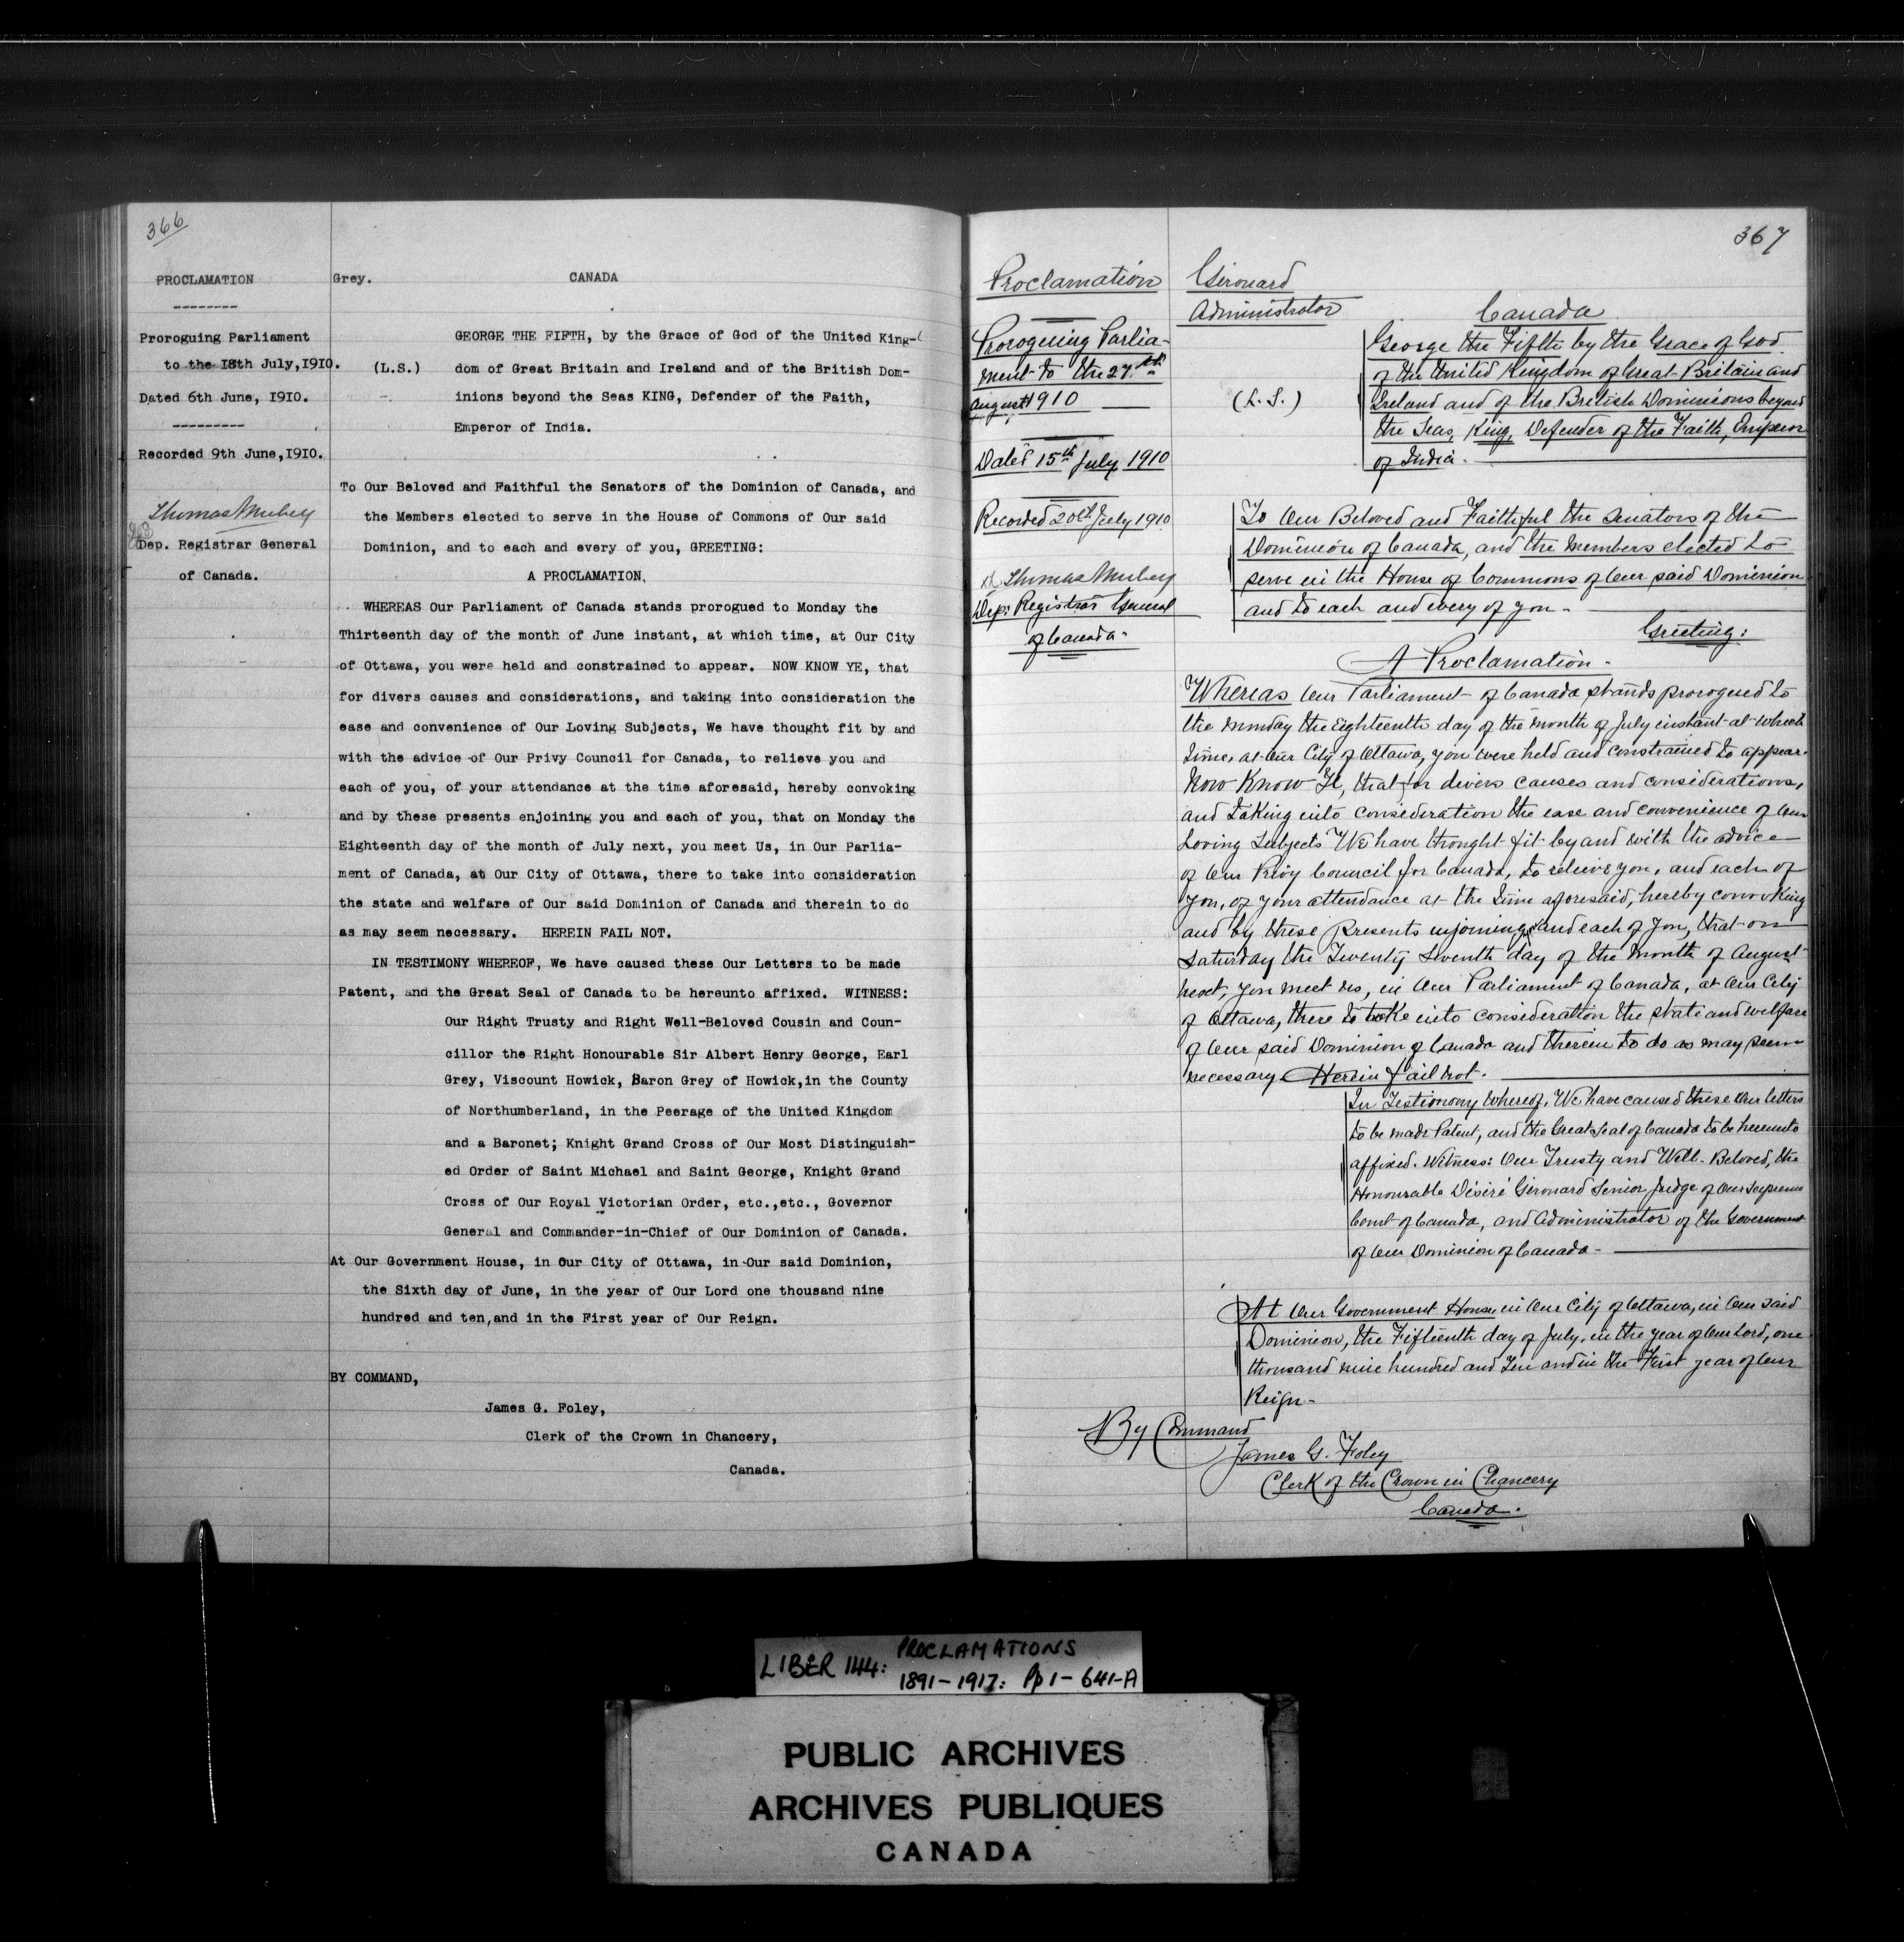 366
PROCLAMATION
Proroguing Parliament
to the 18th July, 1910.
Dated 6th June, 1910.
Recorded 9th June, 1910.
Thomas Mulvey
Dep. Registrar General
of Canada.
Grey.
CANADA
(L.S.)
GEORGE THE FIFTH, by the Grace of God of the United King-
dom of Great Britain and Ireland and of the British Dom-
inions beyond the Seas KING, Defender of the Faith,
Emperor of India.
To Our Beloved and Faithful the Senators of the Dominion of Canada, and
the Members elected to serve in the House of Commons of Our said
Dominion, and to each and every of you, GREETING:
A PROCLAMATION.
WHEREAS Our Parliament of Canada stands prorogued to Monday the
Thirteenth day of the month of June instant, at which time, at Our City
of Ottawa, you were held and constrained to appear. NOW KNOW YE, that
for divers causes and considerations, and taking into consideration the
ease and convenience of Our Loving Subjects, We have thought fit by and
with the advice of Our Privy Council for Canada, to relieve you and
each of you, of your attendance at the time aforesaid, hereby convoking
and by these presents enjoining you and each of you, that on Monday the
Eighteenth day of the month of July next, you meet Us, in Our Parlia-
ment of Canada, at Our City of Ottawa, there to take into consideration
the state and welfare of Our said Dominion of Canada and therein to do
as may seem necessary. HEREIN FAIL NOT.
IN TESTIMONY WHEREOF, We have caused these Our Letters to be made
Patent, and the Great Seal of Canada to be hereunto affixed. WITNESS:
Our Right Trusty and Right Well-Beloved Cousin and Coun-
cillor the Right Honourable Sir Albert Henry George, Earl
Grey, Viscount Howick, Baron Grey of Howick, in the County
of Northumberland, in the Peerage of the United Kingdom
and a Baronet; Knight Grand Cross of Our Most Distinguish-
ed Order of Saint Michael and Saint George, Knight Grand
Cross of Our Royal Victorian Order, etc.,etc., Governor
General and Commander-in-Chief of Our Dominion of Canada.
At Our Government House, in Our City of Ottawa, in Our said Dominion,
the Sixth day of June, in the year of Our Lord one thousand nine
hundred and ten, and in the First year of Our Reign.
BY COMMAND,
James G. Foley,
Clerk of the Crown in Chancery,
Canada.
367
Proclamation
Proroguing Parlia-
ment to the 27th
August 1910
Dated 15th July, 1910
Recorded 20th July 1910
Thomas Mulvey
Dep: Registrar General
of Canada.
Girouard
Administrator
Canada
(L.S.)
George the Fifth by the Grace of God
of the United Kingdom of Great Britain and
Ireland and of the British Dominions beyond
the Seas, King, Defender of the Faith, Emperor
of India.
To Our Beloved and Faithful the Senators of the
Dominion of Canada, and the Members elected to
serve in the House of Commons of Our said Dominion
and to each and every of you -
Greeting:
A Proclamation.
Whereas Our Parliament of Canada stands prorogued to
the Monday the Eighteenth day of the month of July instant at which
time, at Our City of Ottawa, you were held and constrained to appear.
Now Know Ye, that for divers causes and considerations,
and taking into consideration the ease and convenience of Our
Loving Subjects We have thought fit by and with the advice
of Our Privy Council for Canada, to relieve you, and each of
you, of your attendance at the time aforesaid, hereby convoking
and by these Presents enjoining and each of you, that on
Saturday the Twenty Seventh day of the month of August
next, you meet Us, in Our Parliament of Canada, at Our City
of Ottawa, there to take into consideration the state and welfare
of Our said Dominion of Canada and therein to do as may seem
necessary Herein fail not.
In Testimony Whereof, We have caused these Our letters
to be made Patent, and the Great Seal of Canada to be hereunto
affixed. Witness: Our Trusty and Well-Beloved, the
Honourable Désiré Girouard Senior Judge of Our Supreme
Court of Canada, and Administrator of the Government
of Our Dominion of Canada -
At Our Government House, in Our City of Ottawa, in Our said
Dominion, the Fifteenth day of July, in the year of Our Lord, one
thousand nine hundred and Ten and in the First year of Our
Reign -
By Command
James G. Foley
Clerk of the Crown in Chancery
Canada.
LIBER 144: PROCLAMATIONS
1891-1917: Pp 1-641-A
PUBLIC ARCHIVES
ARCHIVES PUBLIQUES
CANADA